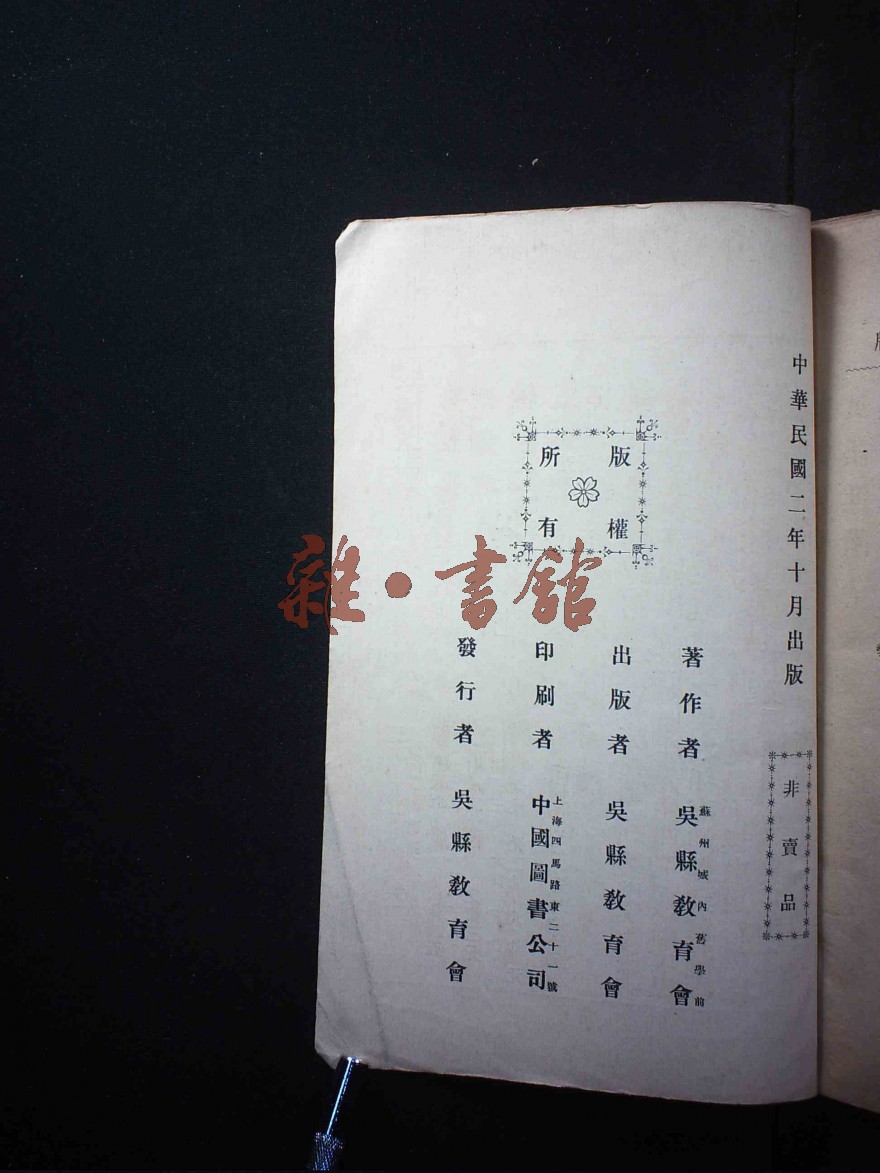 中華民國二年十月出版
非賣品
版權所有
著作者 吳縣教育會
蘇州城內舊學前
出版者 吳縣教育會
印刷者 中國圖書公司
上海四馬路東二十一號
發行者 吳縣教育會
雜·書館